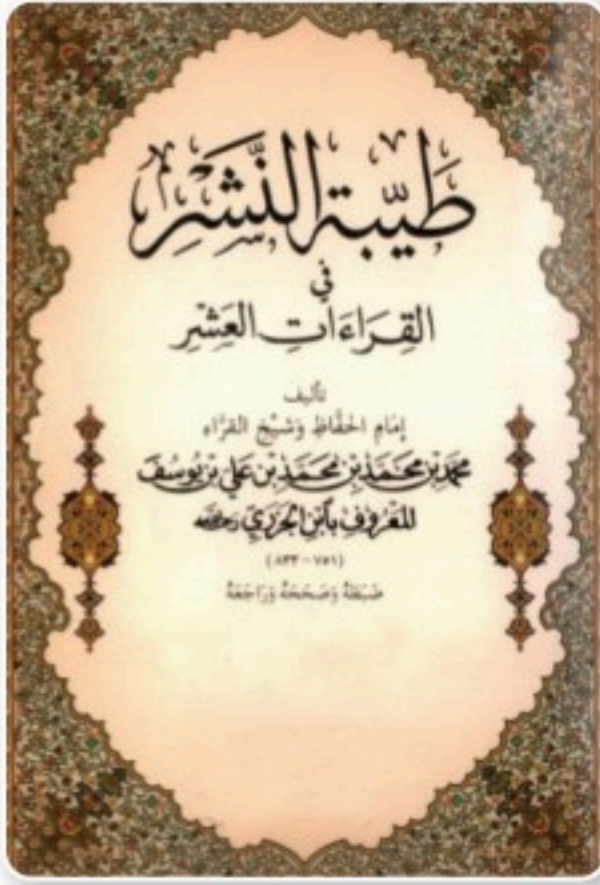 طَيِّبَة النَّشْرِ
في
القِرَاءَاتِ العَشْرِ
تأليف
إمَامِ الحُفَّاظِ وَشَيْخِ القُرَّاءِ
مُحَمَّد بْن مُحَمَّد بْن مُحَمَّد بْن عَلي بْن يُوسُف
المَعْرُوفِ بابْنِ الجَزَرِي رحمه الله
(٧٥١ - ٨٣٣)
ضَبَطَهُ وَصَحَّحَهُ وَرَاجَعَهُ